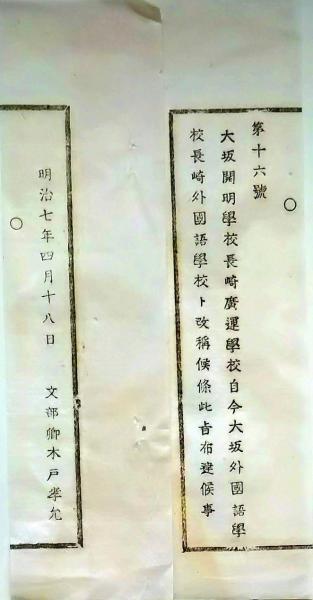 第十六號
大坂開明學校長崎廣運學校自今大坂外國語學
校長崎外國語學校ト改稱候條此旨布達候事
明治七年四月十八日　文部卿木戸孝允